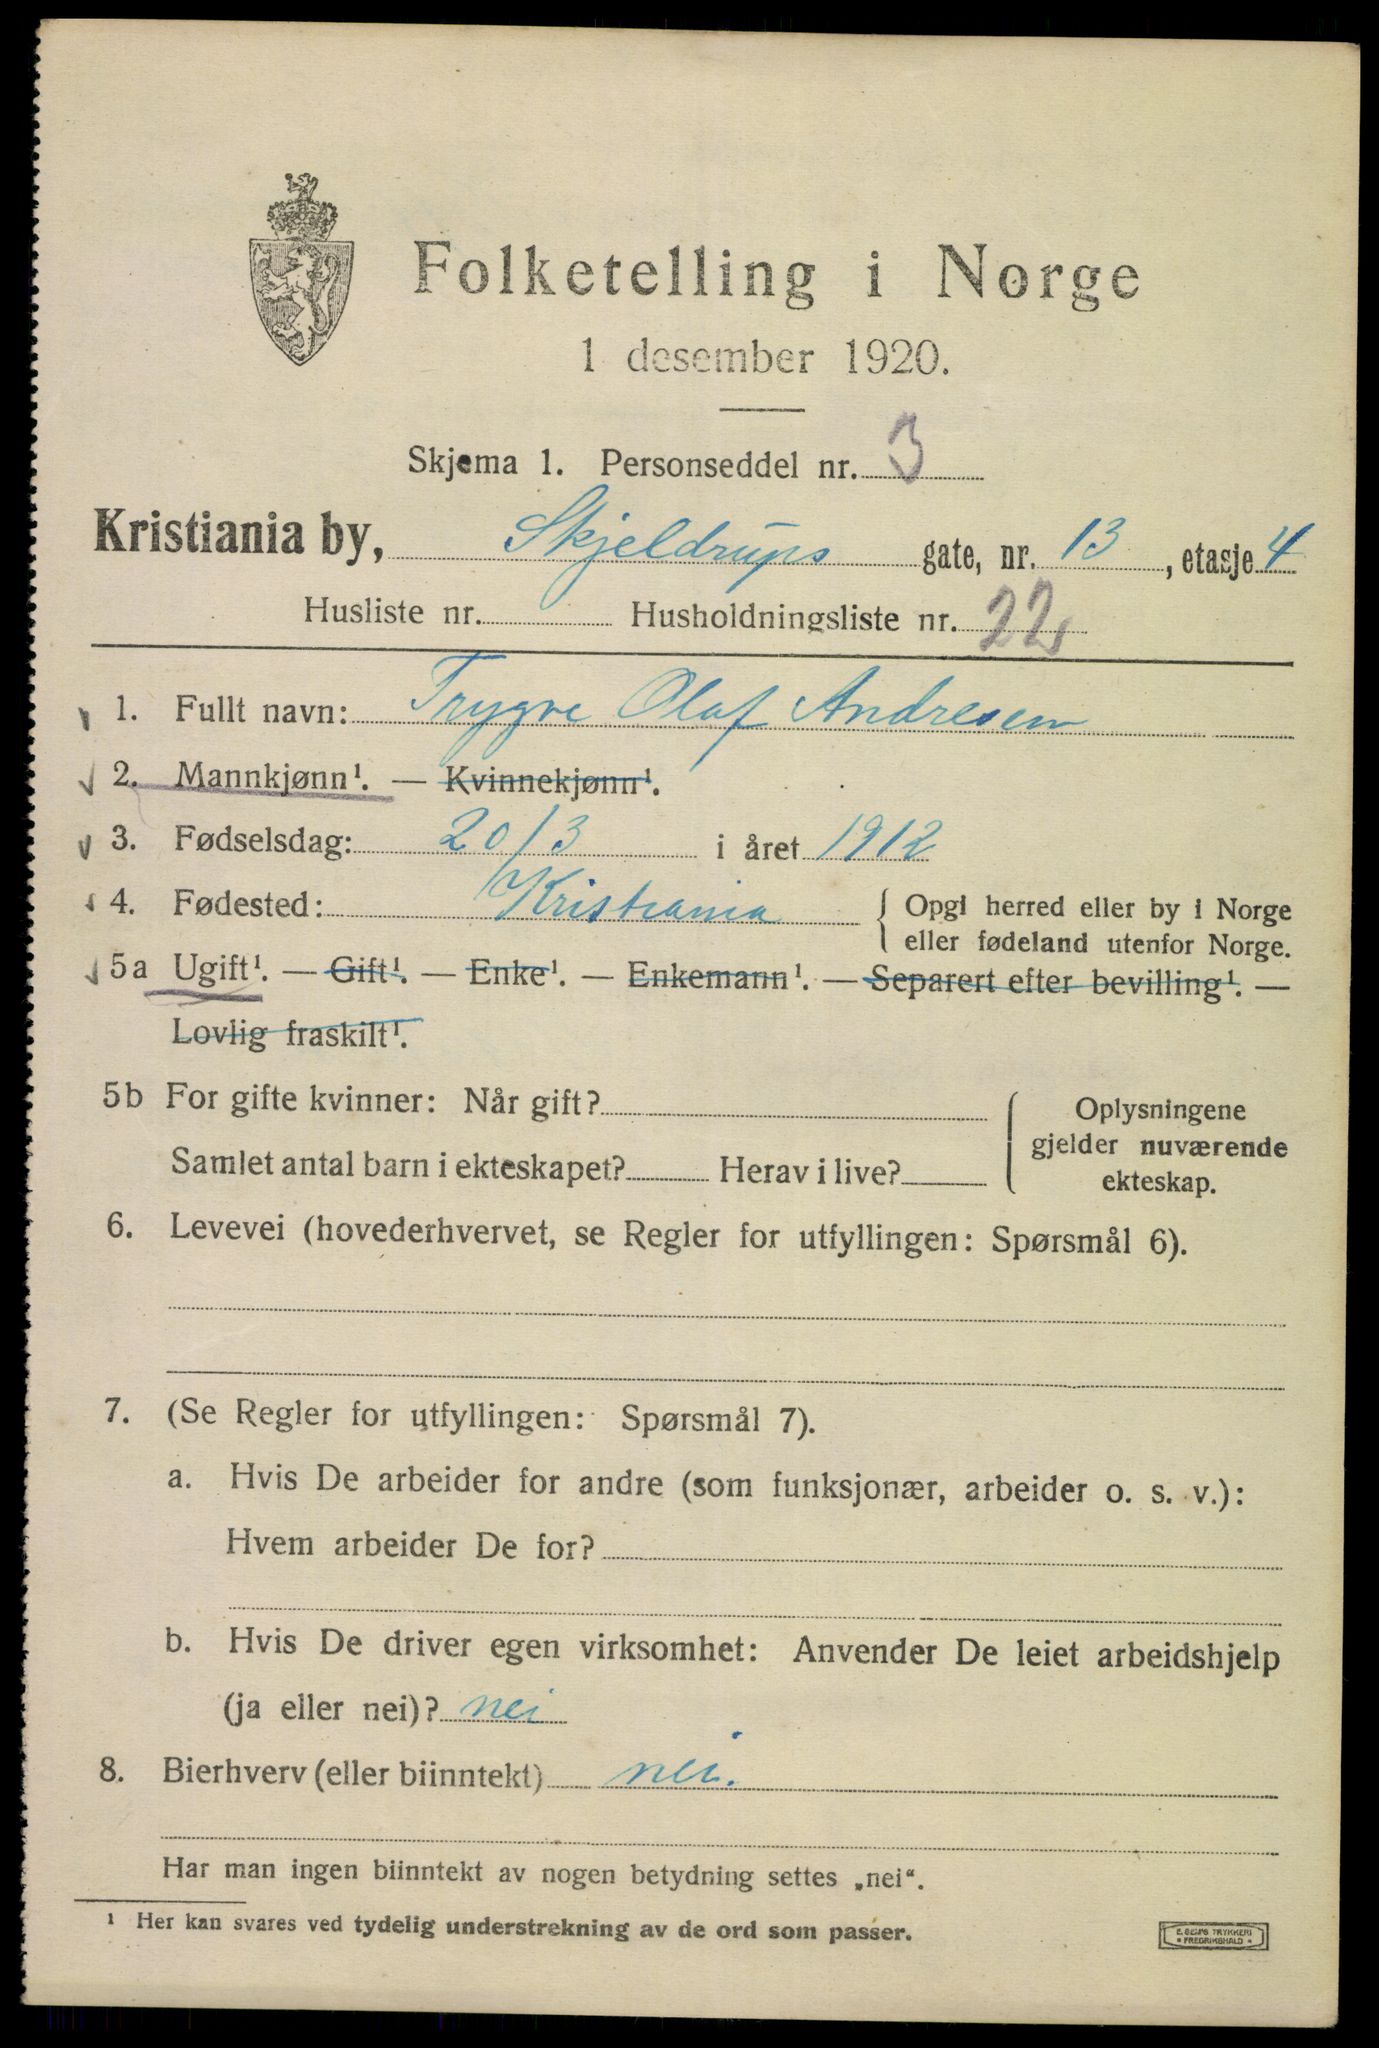 Folketelling i Norge
1 desember 1920.
Skjema 1. Personseddel nr. 3
Kristiania by, Skjeldrups gate, nr. 13, etasje 4
Husliste nr. Husholdningsliste nr. 22
1. Fullt navn: Trygve Olaf Andresen
2. Mannkjønn¹. — Kvinnekjønn¹.
3. Fødselsdag: 20/3 i året 1912
4. Fødested: Kristiania { Opgi herred eller by i Norge
eller fødeland utenfor Norge.
5a Ugift¹. — Gift¹. — Enke¹. — Enkemann¹. — Separert efter bevilling¹. —
Lovlig fraskilt¹.
5b For gifte kvinner: Når gift?
Samlet antal barn i ekteskapet? Herav i live?
Oplysningene
gjelder nuværende
ekteskap.
6. Levevei (hovederhvervet, se Regler for utfyllingen: Spørsmål 6).
7. (Se Regler for utfyllingen: Spørsmål 7).
a. Hvis De arbeider for andre (som funksjonær, arbeider o. s. v.):
Hvem arbeider De for?
b. Hvis De driver egen virksomhet: Anvender De leiet arbeidshjelp
(ja eller nei)? nei
8. Bierhverv (eller biinntekt) nei.
Har man ingen biinntekt av nogen betydning settes „nei“.
¹ Her kan svares ved tydelig understrekning av de ord som passer.
E. SEMS TRYKKERI
• FREDRIKSHALD •